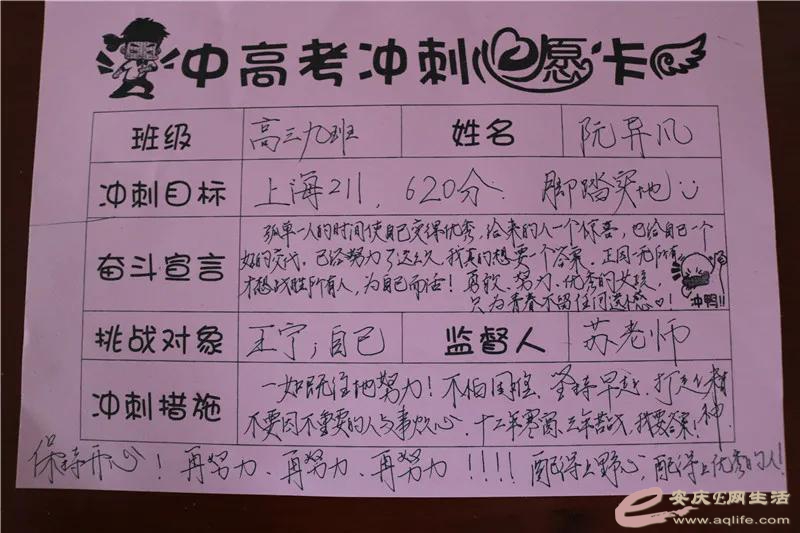 中高考冲刺心愿卡
班级 高三九班 姓名 阮异凡
冲刺目标 上海211，620分 脚踏实地
奋斗宣言 孤单一人的时间使自己变得优秀，给来的人一个惊喜，也给自己一个
好的交代。已经努力了这么久，我真的想要一个答案。正因一无所有
才想战胜所有人，为自己而活！勇敢、努力、优秀的女孩，
只为青春不留任何遗憾！
冲鸭!!
挑战对象 王宁；自己 监督人 苏老师
冲刺措施 一如既往地努力！不怕困难、坚持早起、打起精神
不要因不重要的人与事烦心。十二年寒窗、三年苦战，我要答案！
保持开心！再努力、再努力、再努力！！！！配得上野心，配得上优秀的人！
安庆e网生活
www.aqlife.com